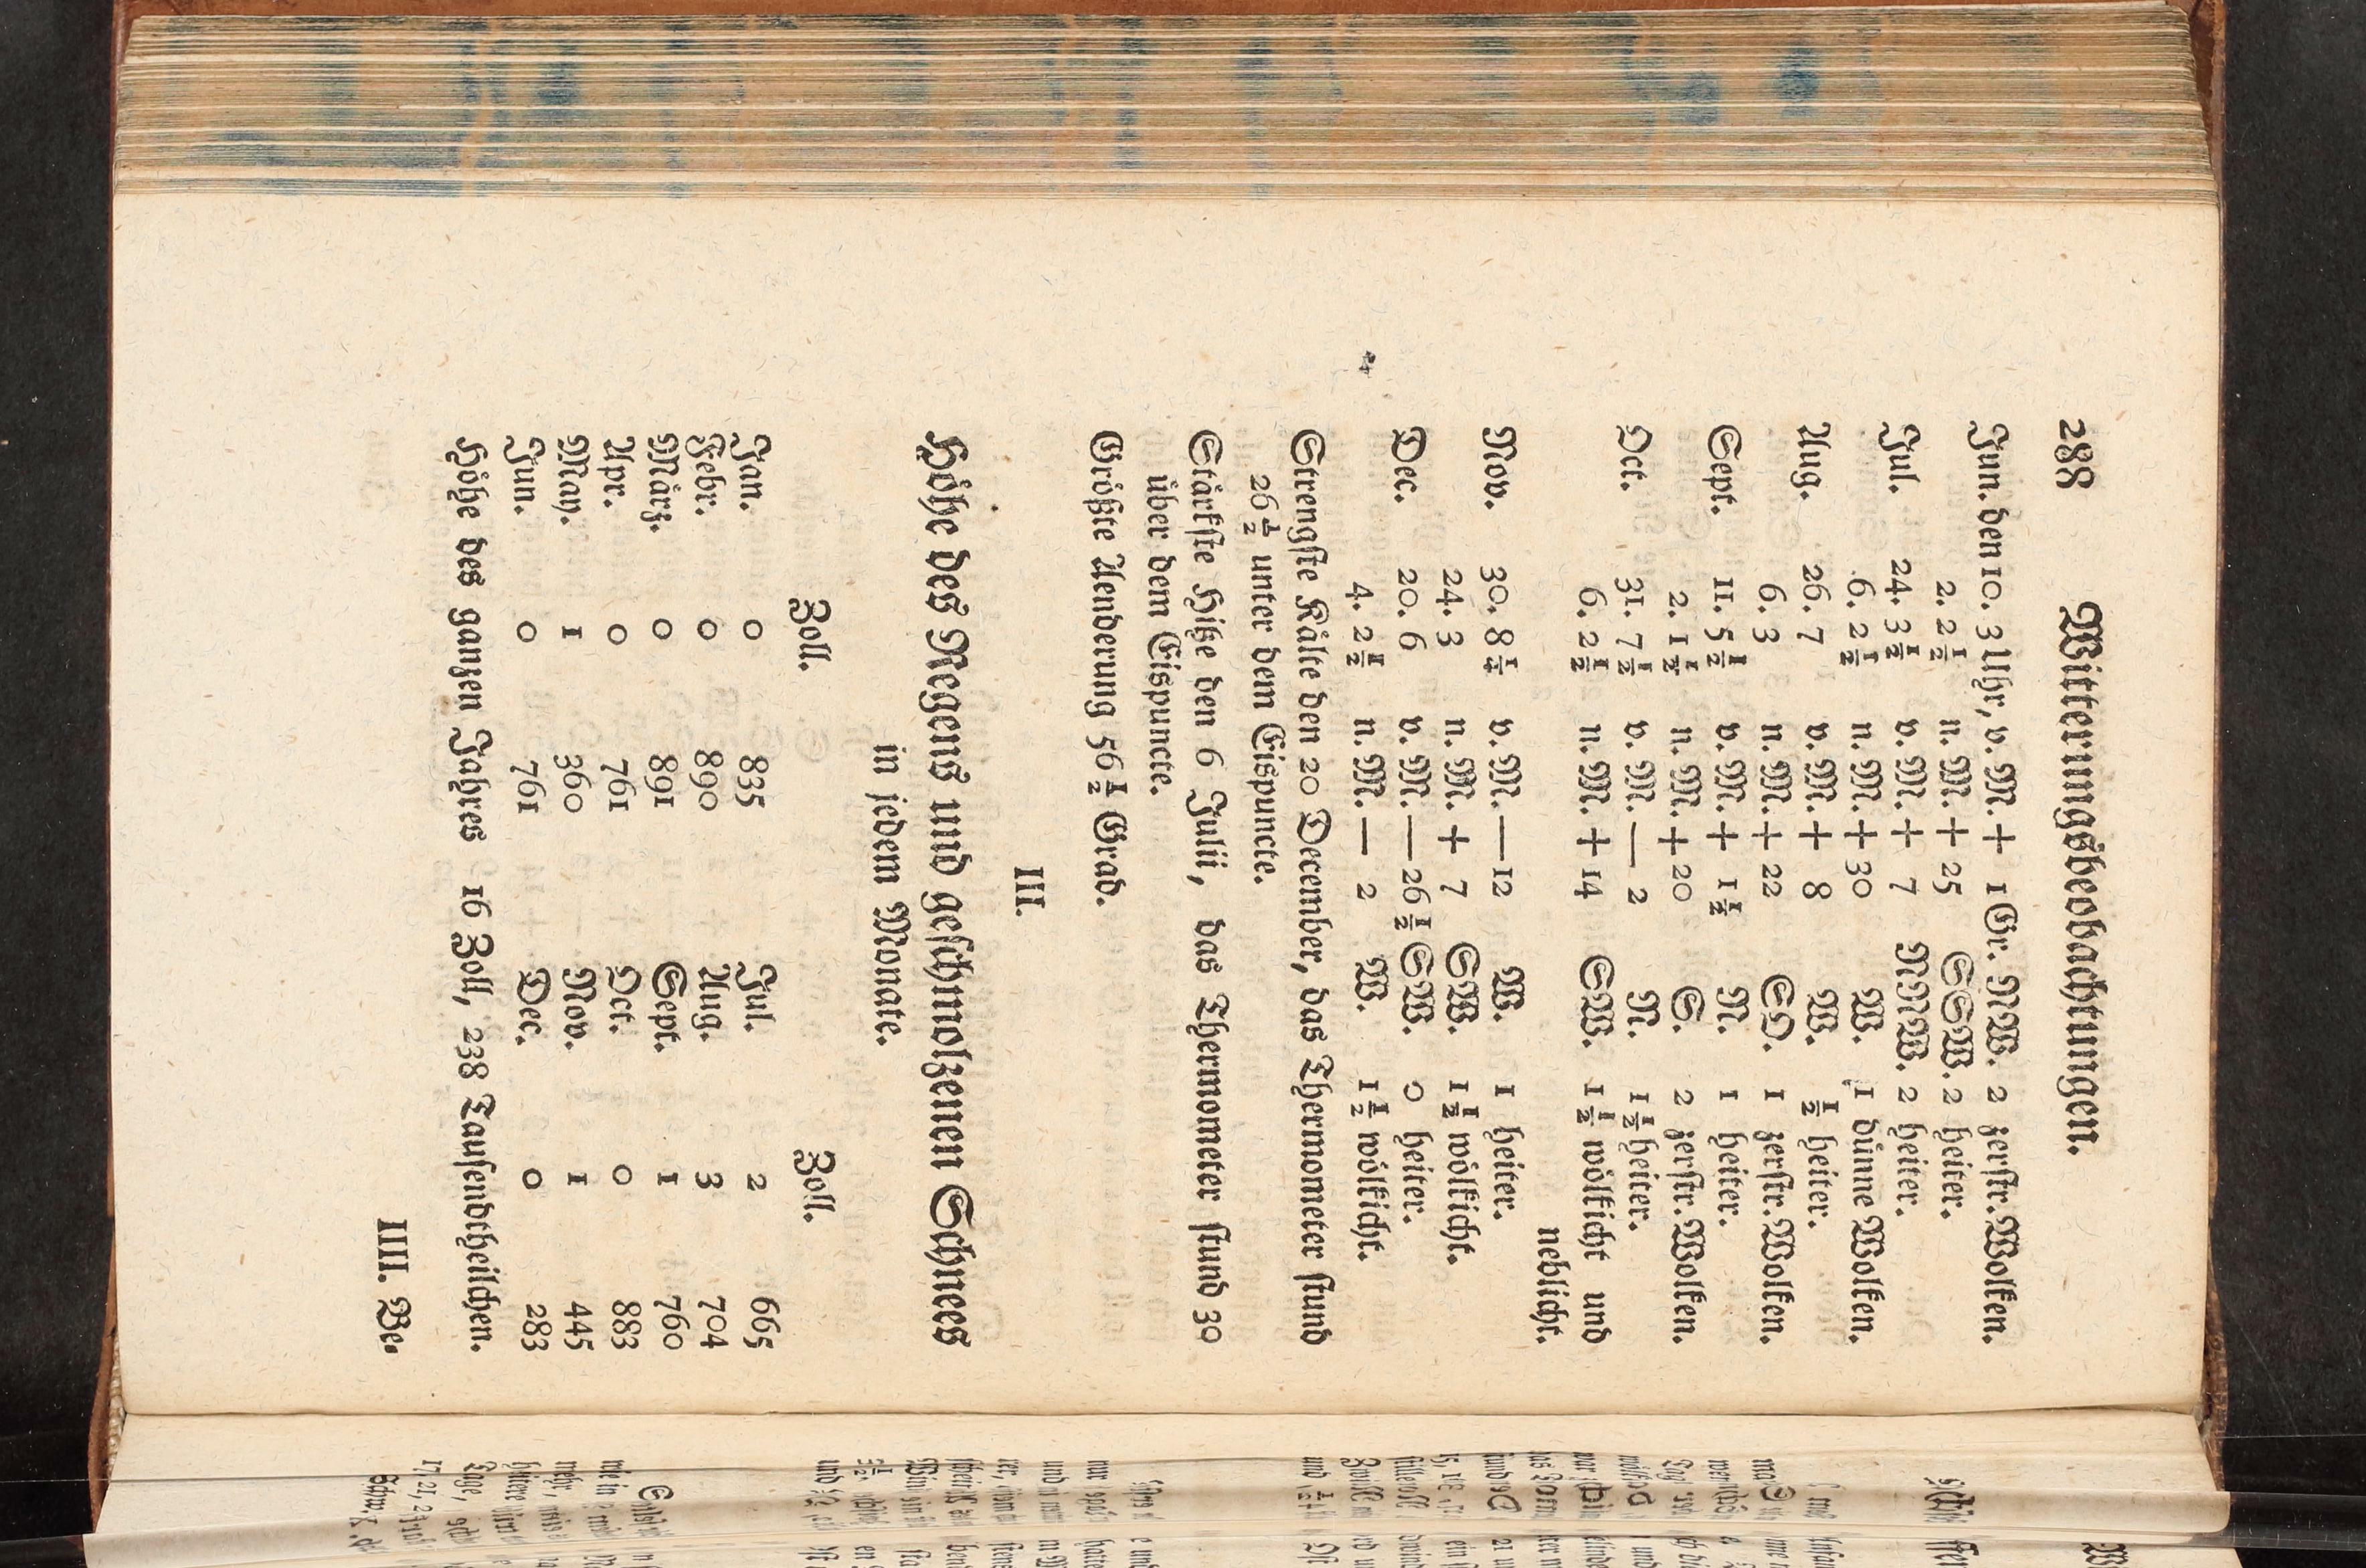 288 Witterungsbeobachtungen.
Jun. den 10. 3 Uhr, v. M. + 1 Gr. NW. 2 zerstr. Wolken.
2. 2½ n. M. + 25 SSW. 2 heiter.
Jul. 24. 3½ v. M. + 7 NNW. 2 heiter.
6. 2½ n. M. + 30 W. 1 dünne Wolken.
Aug. 26. 7 v. M. + 8 W. ½ heiter.
6. 3 n. M. + 22 SO. 1 zerstr. Wolken.
Sept. 11. 5½ v. M. + 1½ N. 1 heiter.
2. 1½ n. M. + 20 S. 2 zerstr. Wolken.
Oct. 31. 7½ v. M. — 2 N. 1½ heiter.
6. 2½ n. M. + 14 SW. 1½ wölkicht und
neblicht.
Nov. 30. 8¼ v. M. — 12 W. 1 heiter.
24. 3 n. M. + 7 SW. 1½ wölkicht.
Dec. 20. 6 v. M. — 26½ SW. 0 heiter.
4. 2½ n. M. — 2 W. 1½ wölkicht.
Strengste Kälte den 20 December, das Thermometer stund
26½ unter dem Eispuncte.
Stärkste Hitze den 6 Julii, das Thermometer stund 30
über dem Eispuncte.
Größte Aenderung 56½ Grad.
III.
Höhe des Regens und geschmolzenen Schnees
in jedem Monate.
Zoll. Zoll.
Jan. 0 835 Jul. 2 665
Febr. 0 890 Aug. 3 704
März. 0 891 Sept. 1 760
Apr. 0 761 Oct. 0 883
May. 1 360 Nov. 1 445
Jun. 0 761 Dec. 0 283
Höhe des ganzen Jahres 16 Zoll, 238 Tausendtheilchen.
IIII. Be-